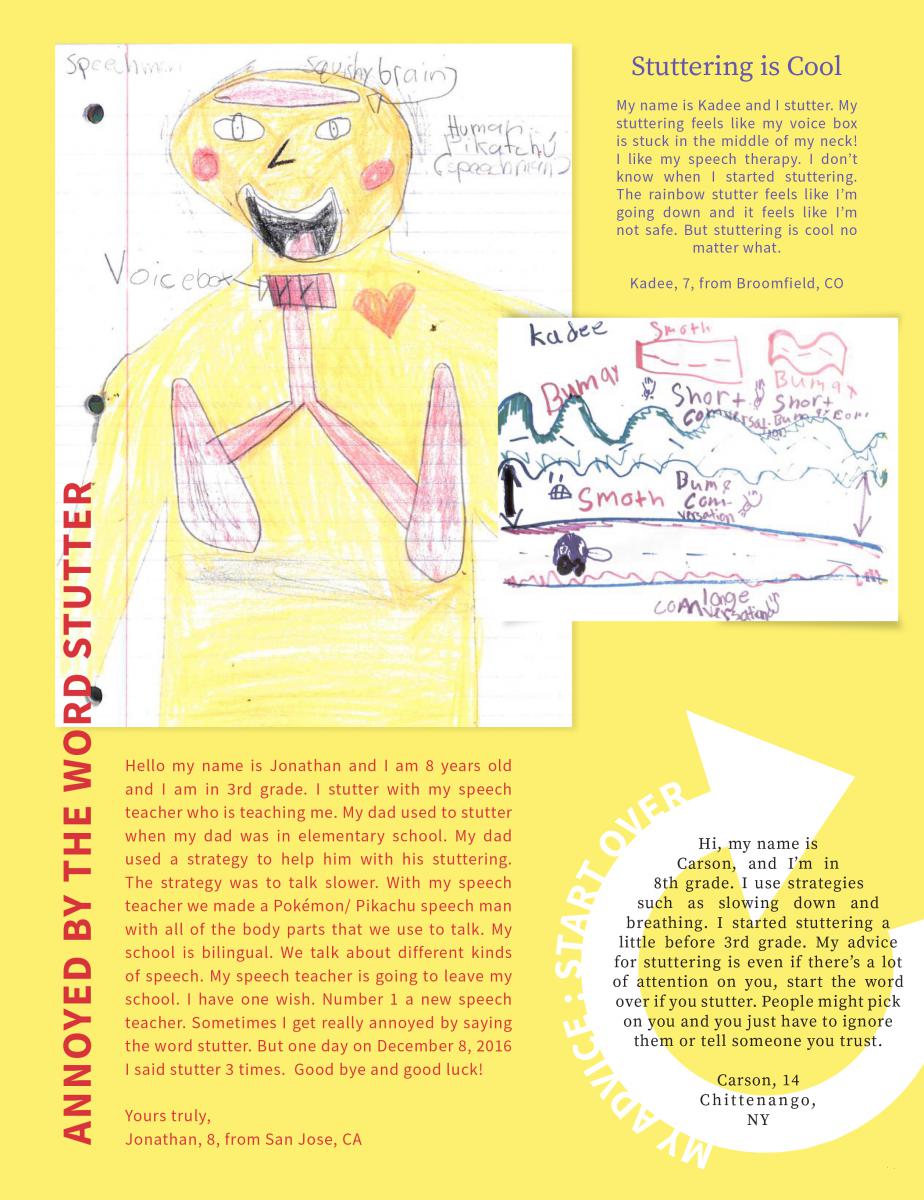 Speechman
squishy brain
Human
Pikatchú
(speechman)
Voicebox
ANNOYED BY THE WORD STUTTER
Hello my name is Jonathan and I am 8 years old
and I am in 3rd grade. I stutter with my speech
teacher who is teaching me. My dad used to stutter
when my dad was in elementary school. My dad
used a strategy to help him with his stuttering.
The strategy was to talk slower. With my speech
teacher we made a Pokémon/ Pikachu speech man
with all of the body parts that we use to talk. My
school is bilingual. We talk about different kinds
of speech. My speech teacher is going to leave my
school. I have one wish. Number 1 a new speech
teacher. Sometimes I get really annoyed by saying
the word stutter. But one day on December 8, 2016
I said stutter 3 times.  Good bye and good luck!
Yours truly,
Jonathan, 8, from San Jose, CA
Stuttering is Cool
My name is Kadee and I stutter. My
stuttering feels like my voice box
is stuck in the middle of my neck!
I like my speech therapy. I don't
know when I started stuttering.
The rainbow stutter feels like I'm
going down and it feels like I'm
not safe. But stuttering is cool no
matter what.
Kadee, 7, from Broomfield, CO
kadee
Smoth
Bumax
Bumax
Short
Short
Smoth
long
MY ADVICE: START OVER
Hi, my name is
Carson, and I'm in
8th grade. I use strategies
such as slowing down and
breathing. I started stuttering a
little before 3rd grade. My advice
for stuttering is even if there's a lot
of attention on you, start the word
over if you stutter. People might pick
on you and you just have to ignore
them or tell someone you trust.
Carson, 14
Chittenango,
NY